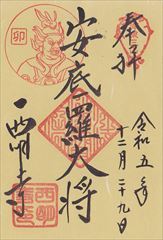 奉拝
令和五年
十二月二十九日
安底羅大将
西明寺
卯